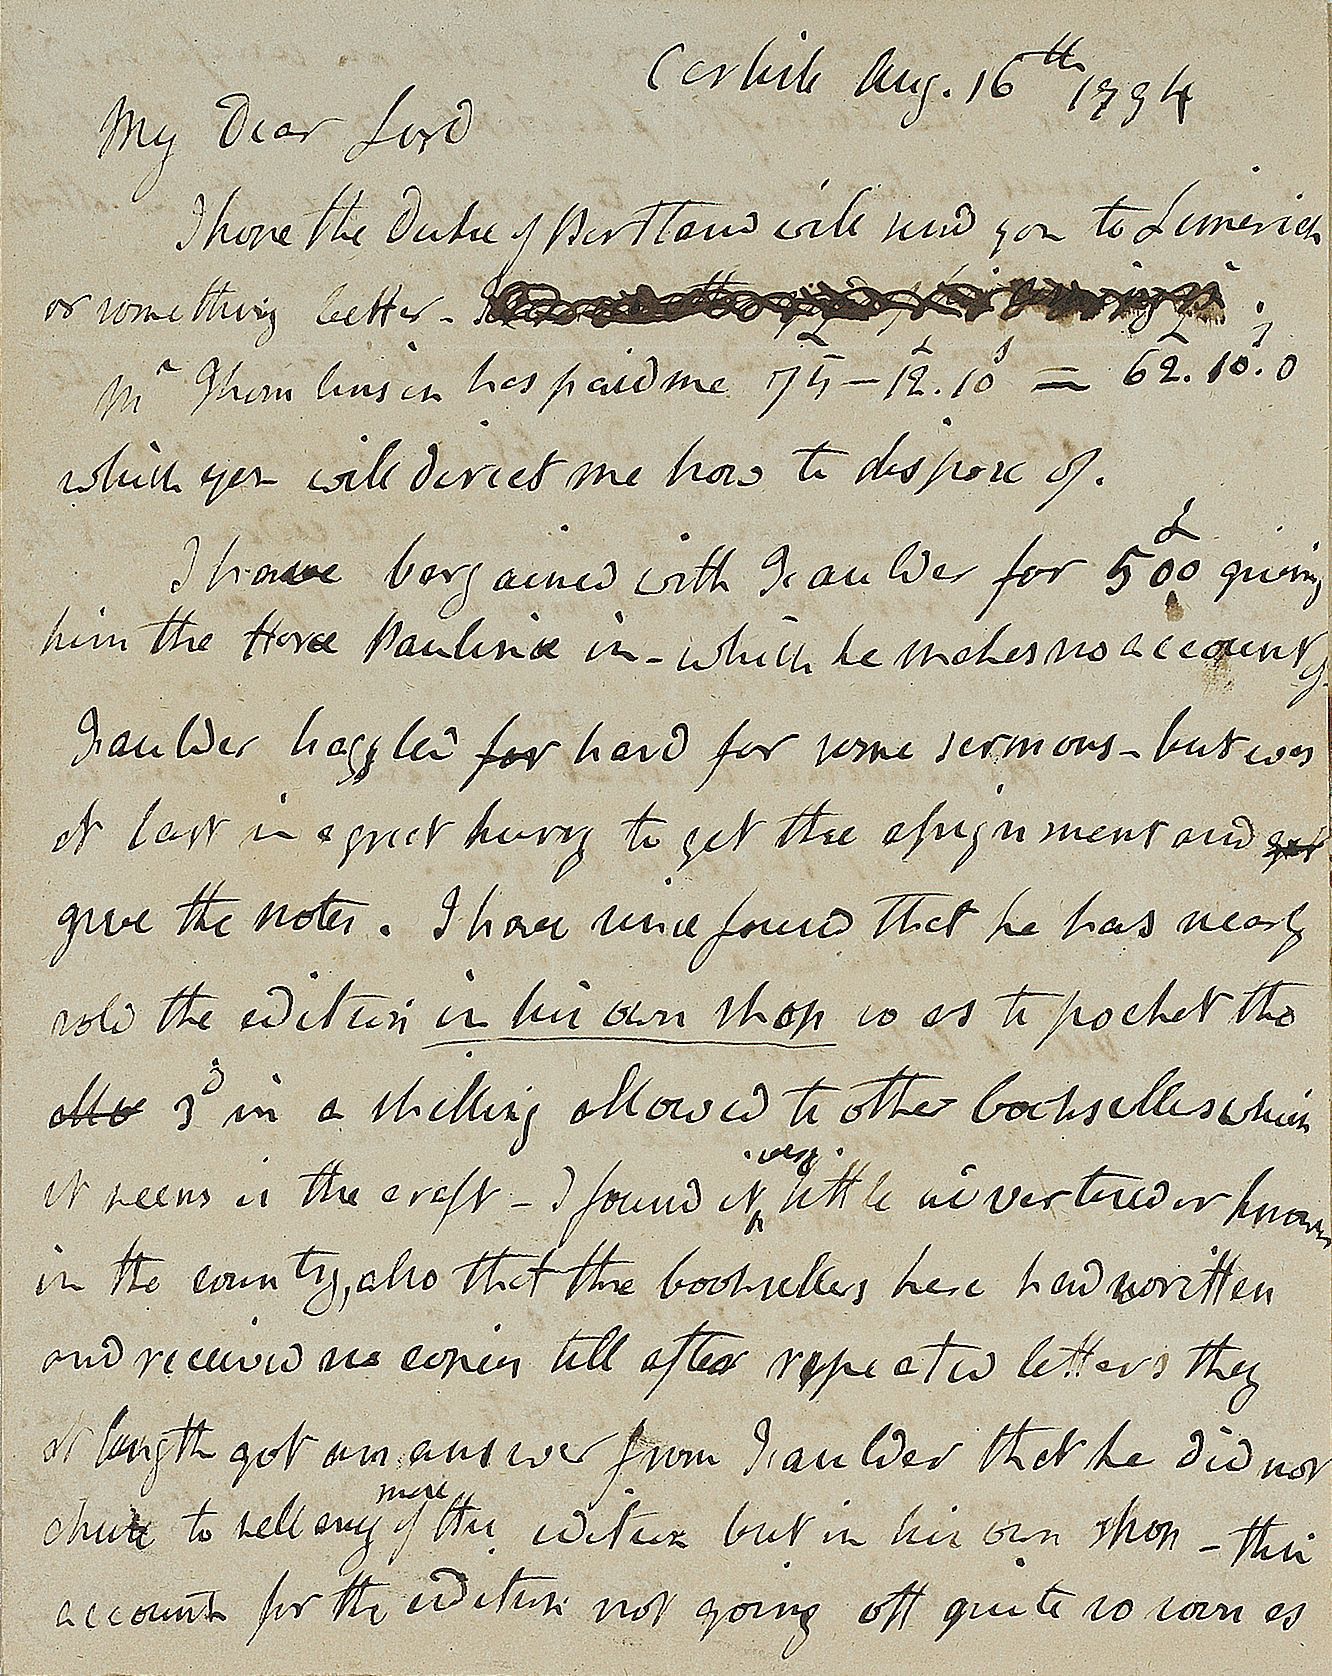 Carlisle Aug. 16th 1794
My Dear Lord
I hope the Duke of Portland will send you to Limerick
or something better -
Mr Thomlinson has paid me 75£ - 12£.10s = 62£.10s.0
which you will direct me how to dispose of.
I have bargained with Faulder for 500£ giving
him the Horæ Paulinæ in - which he makes no account of -
Faulder haggled for hard for some sermons - but was
at last in a great hurry to get the assignment and get
give the notes. I have since found that he has nearly
sold the edition in his own shop so as to pocket the
allo 3d in a shilling allowed to other booksellers which
it seems is the craft - I found it very little advertised or known
in the country, also that the booksellers here had written
and received no copies till after repeated letters they
at length got an answer from Faulder that he did not
chuse to sell any more of this edition but in his own shop - this
accounts for the edition not going off quite so soon as